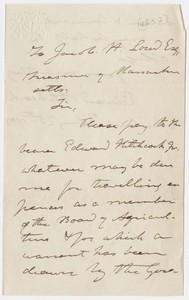 To Jacob H Loud Esq
Treasurer of Massachu
setts.
Sir,
Please pay to the
bearer Edward Hitchcock Jr
whatever may be due
me for travelling ex
penses as a member
of the Board of Agricul-
ture & for which a
warrant has been
drawn by the Gove